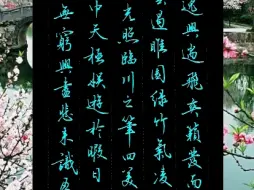 逸興遄飛爽籟發而
遏睢園綠竹氣凌
光照臨川之筆四美
中天極娛遊於暇日
無窮興盡悲來識